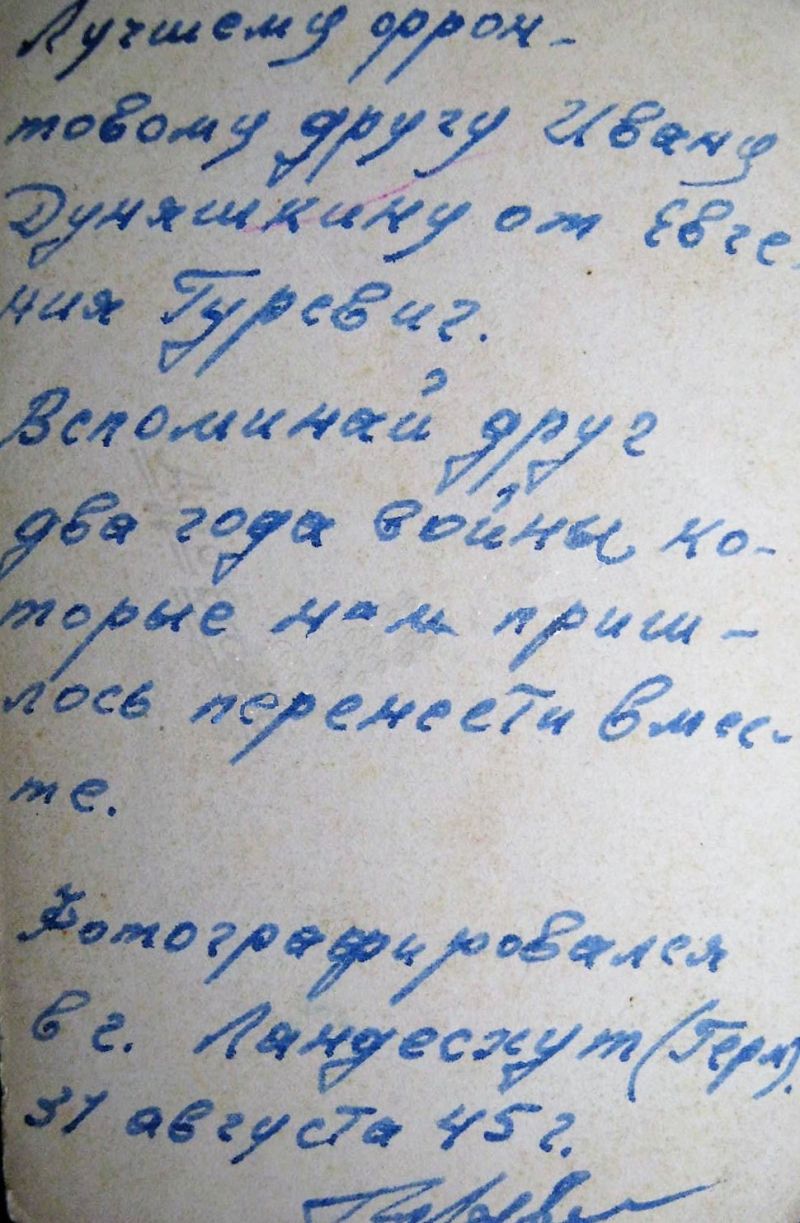 Лучшему фрон-
товому другу Ивану
Дуняшкину от Евге-
ния Гуревич.
Вспоминай друг
два года войны ко-
торые нам приш-
лось перенести вмес-
те.
Фотографировался
в г. Ландесхут (Герм).
31 августа 45 г.